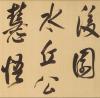 後園
水丘公
慧悟